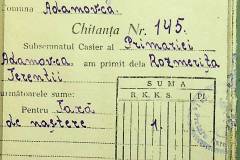 omuna Adamovca.
Chitanța Nr. 145.
Subsemnatul Casier al Primariei
Adamovca am primit dela Rozmerița
Terentii
SUMA
R. K. K. S. Pl.
următoarele sume:
Pentru Taxă 1.
de naștere